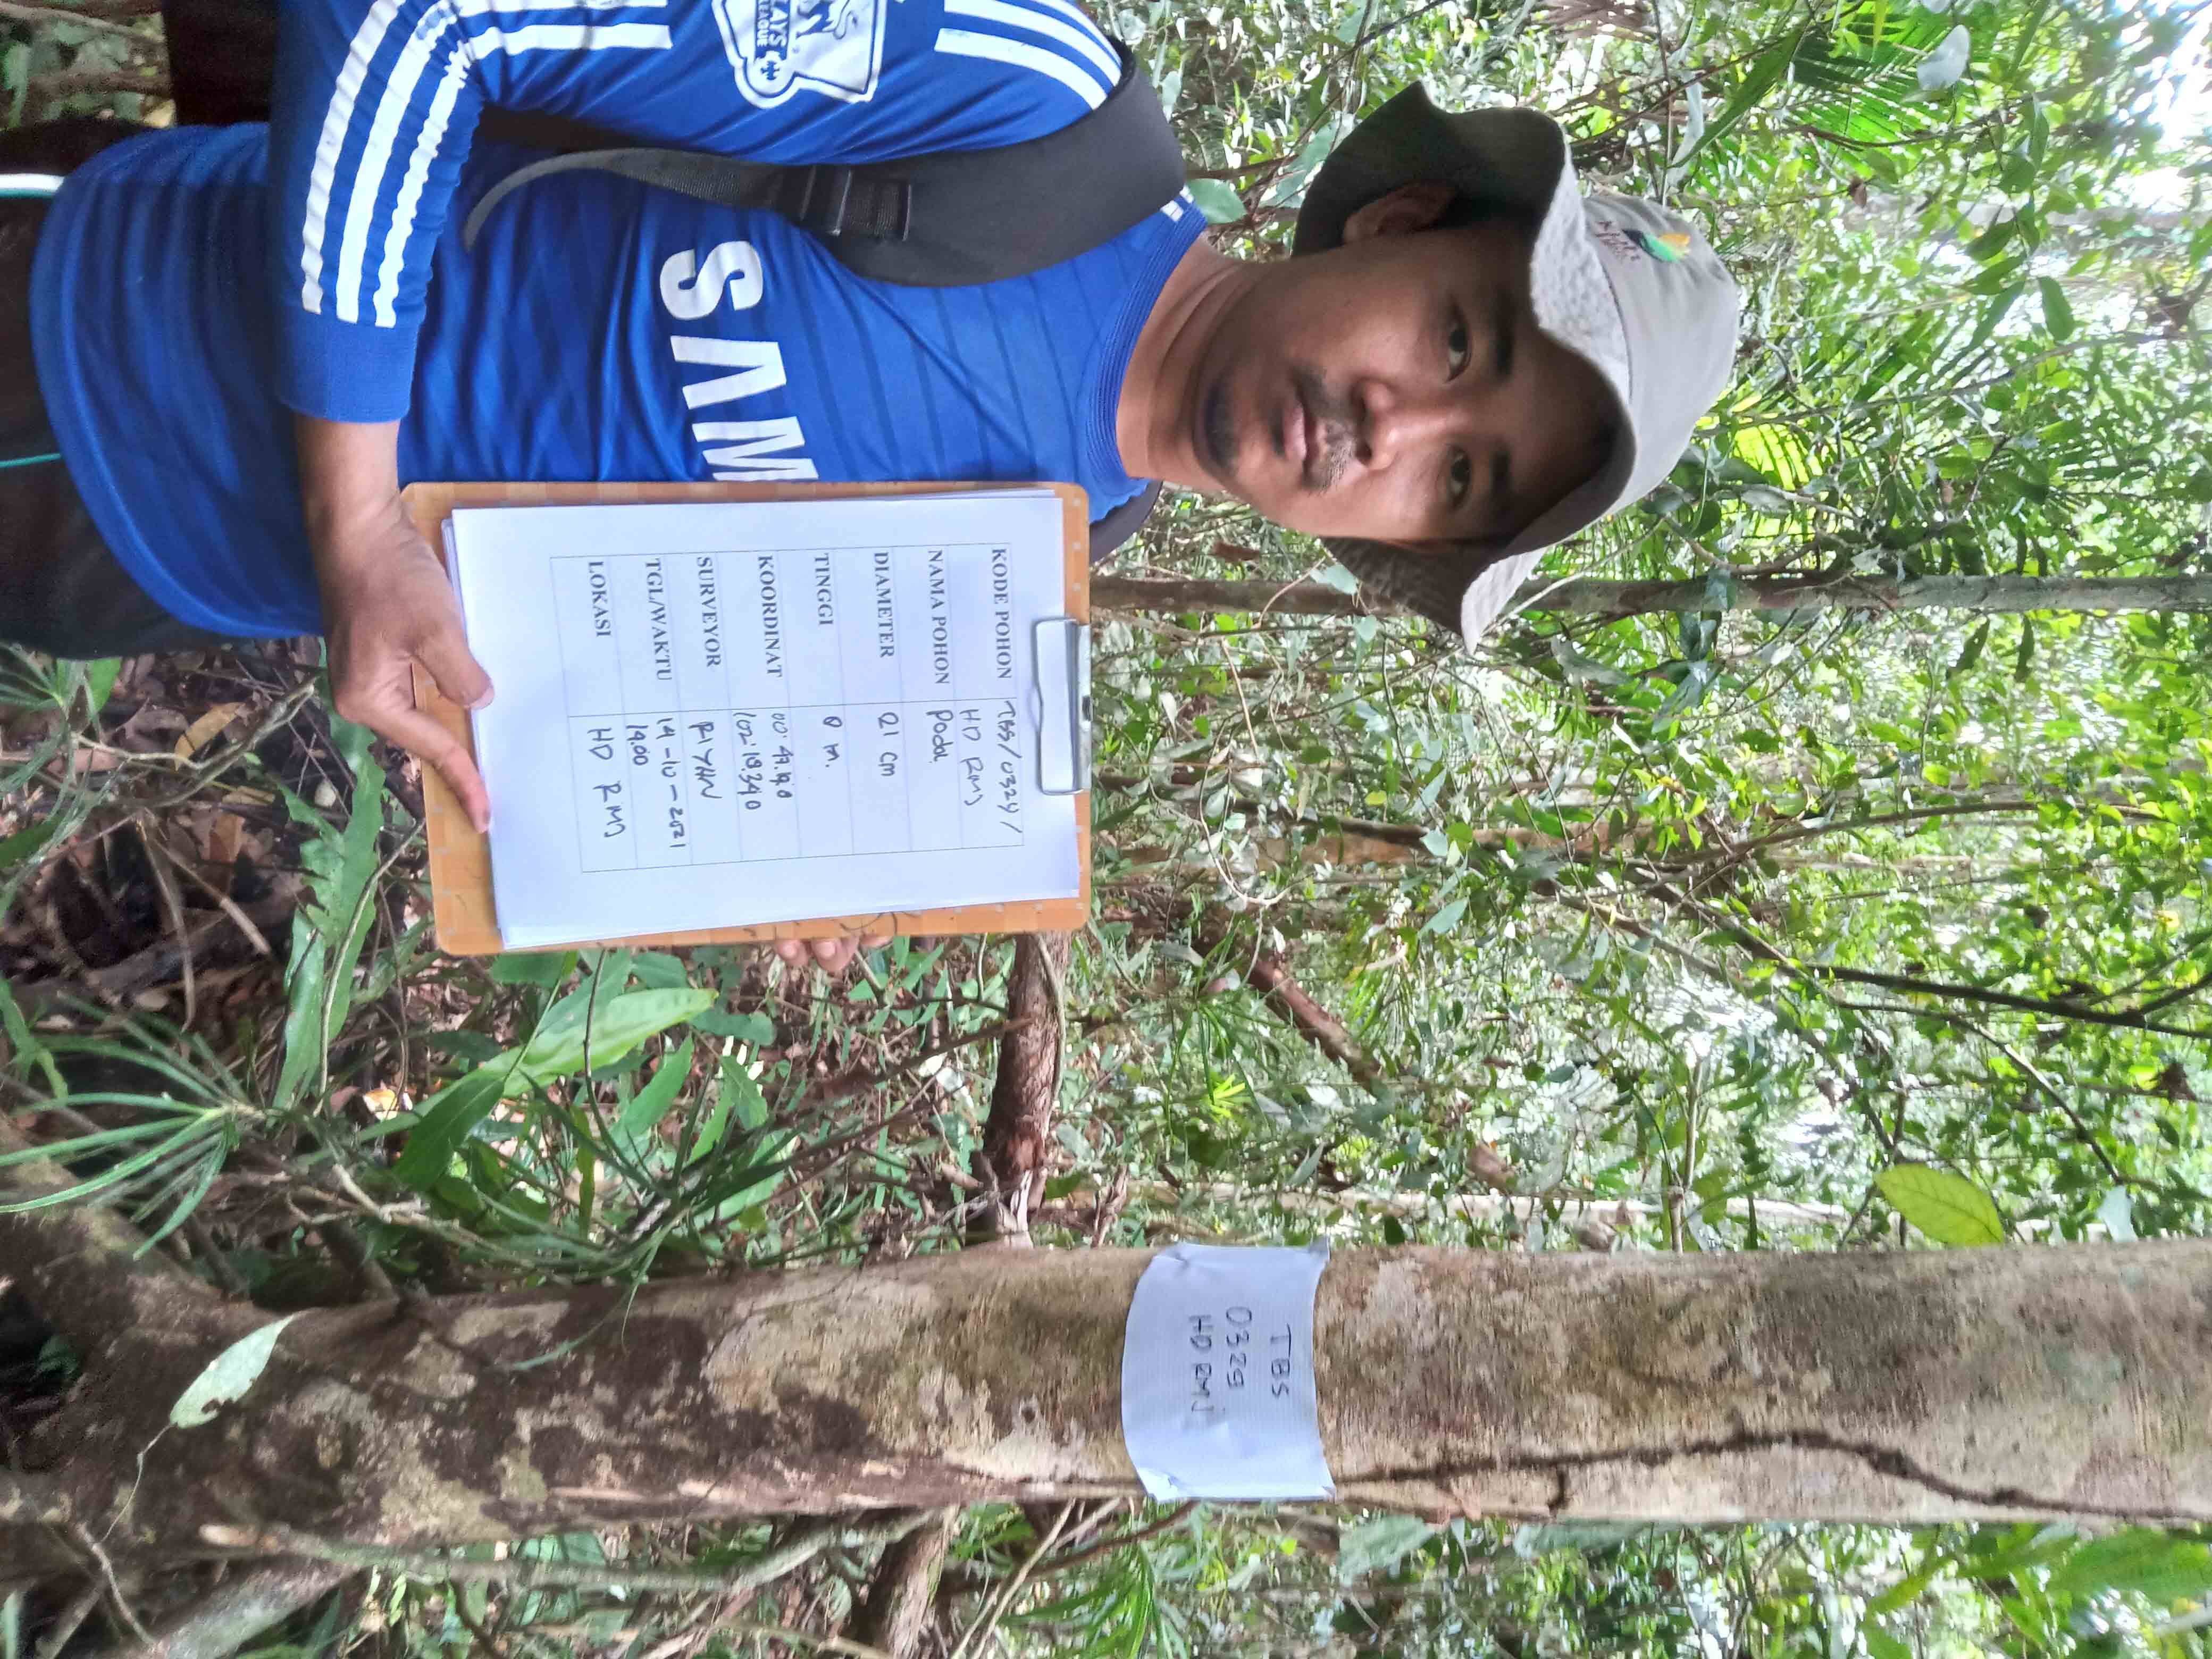 SAM
KODE POHON TBS/0329/
HD RMJ
NAMA POHON Podal
DIAMETER 21 cm
TINGGI 8 m.
KOORDINAT
SURVEYOR RIYAN
TGL/WAKTU 14-10-2021
14.00
LOKASI HD RMJ
TBS
0329
HD RMJ